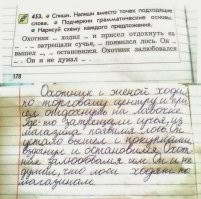 453. • Спиши. Напиши вместо точек подходящие
слова. • Подчеркни грамматические основы.
• Нарисуй схему каждого предложения.
Охотник ... ходил ... и присел отдохнуть на
... ... затрещали сучья, ... появился лось. Он ...
вышел ... и остановился. Охотник залюбовался
... Он и не думал ...
178
Охотник с женой ходил
по торговому центру и при
сел отдохнуть на лавочке.
Где-то затрещали сучья, из
магазина появился лось. Он
устало вышел с покупками
в руках и остановился. Охот
ник залюбовался им. Он и не
думал, что лоси ходят по
магазинам.